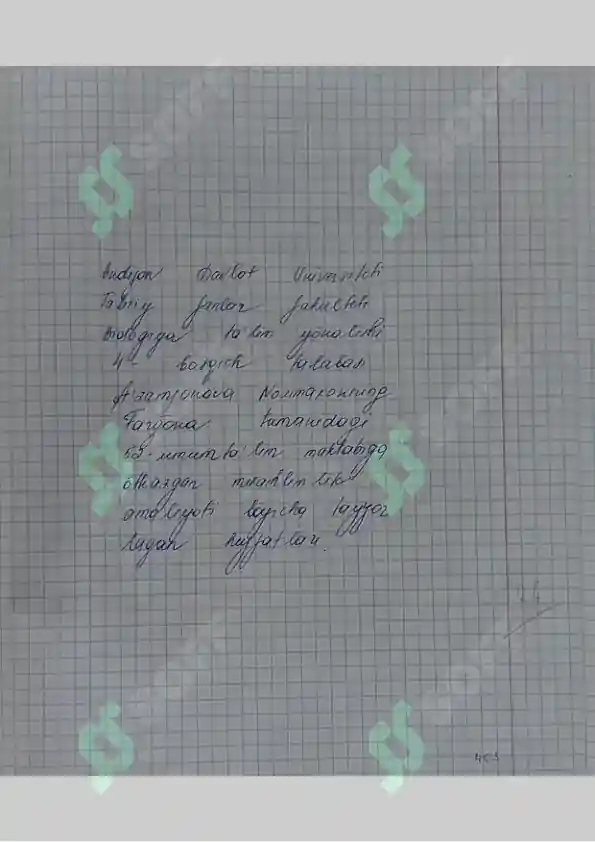 Andijon Davlat Universiteti
Tabiiy fanlar fakulteti
Biologiya ta'lim yonalishi
4- bosqich talabasi
A'zamjonova Nozimaxonning
Farg'ona tumanidagi
52-umum ta'lim maktabiga
o'tkazgan muallimlik
amaliyoti boyicha tayyor
lagan hujjatlari.